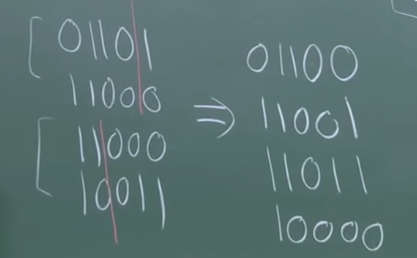 01101
11000
11000
10011
⇒
01100
11001
11011
10000